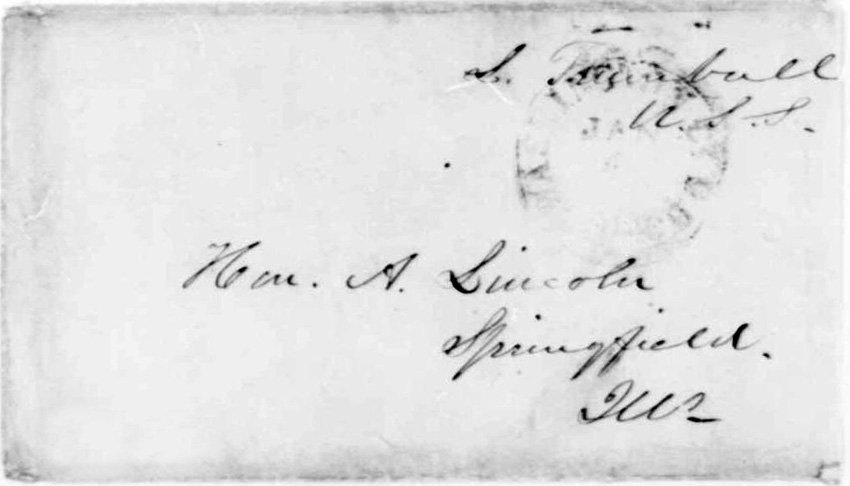 L. Trumbull
U.S.S.
Hon. A. Lincoln
Springfield.
Ills